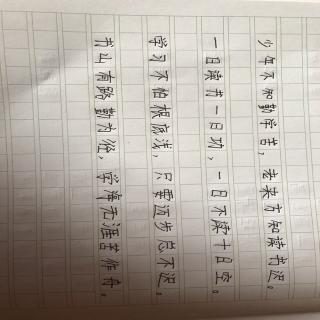 少年不知勤学苦，老来方知读书迟。
一日读书一日功，一日不读十日空。
学习不怕根底浅，只要迈步总不迟。
书山有路勤为径，学海无涯苦作舟。